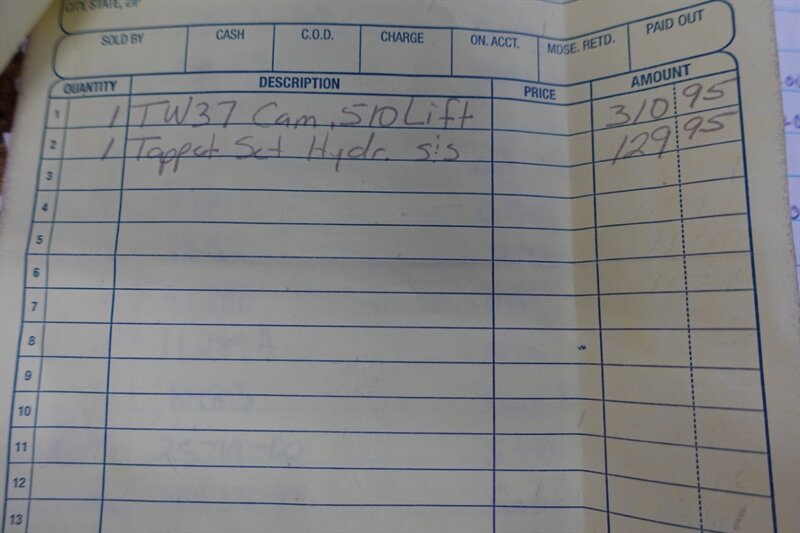 CITY, STATE, ZIP
SOLD BY CASH C.O.D. CHARGE ON. ACCT. MDSE. RETD. PAID OUT
QUANTITY DESCRIPTION PRICE AMOUNT
1 1 TW37 Cam .510 Lift 310 95
2 1 Tappet Set Hydr. s:s 129 95
3
4
5
6
7
8
9
10
11
12
13